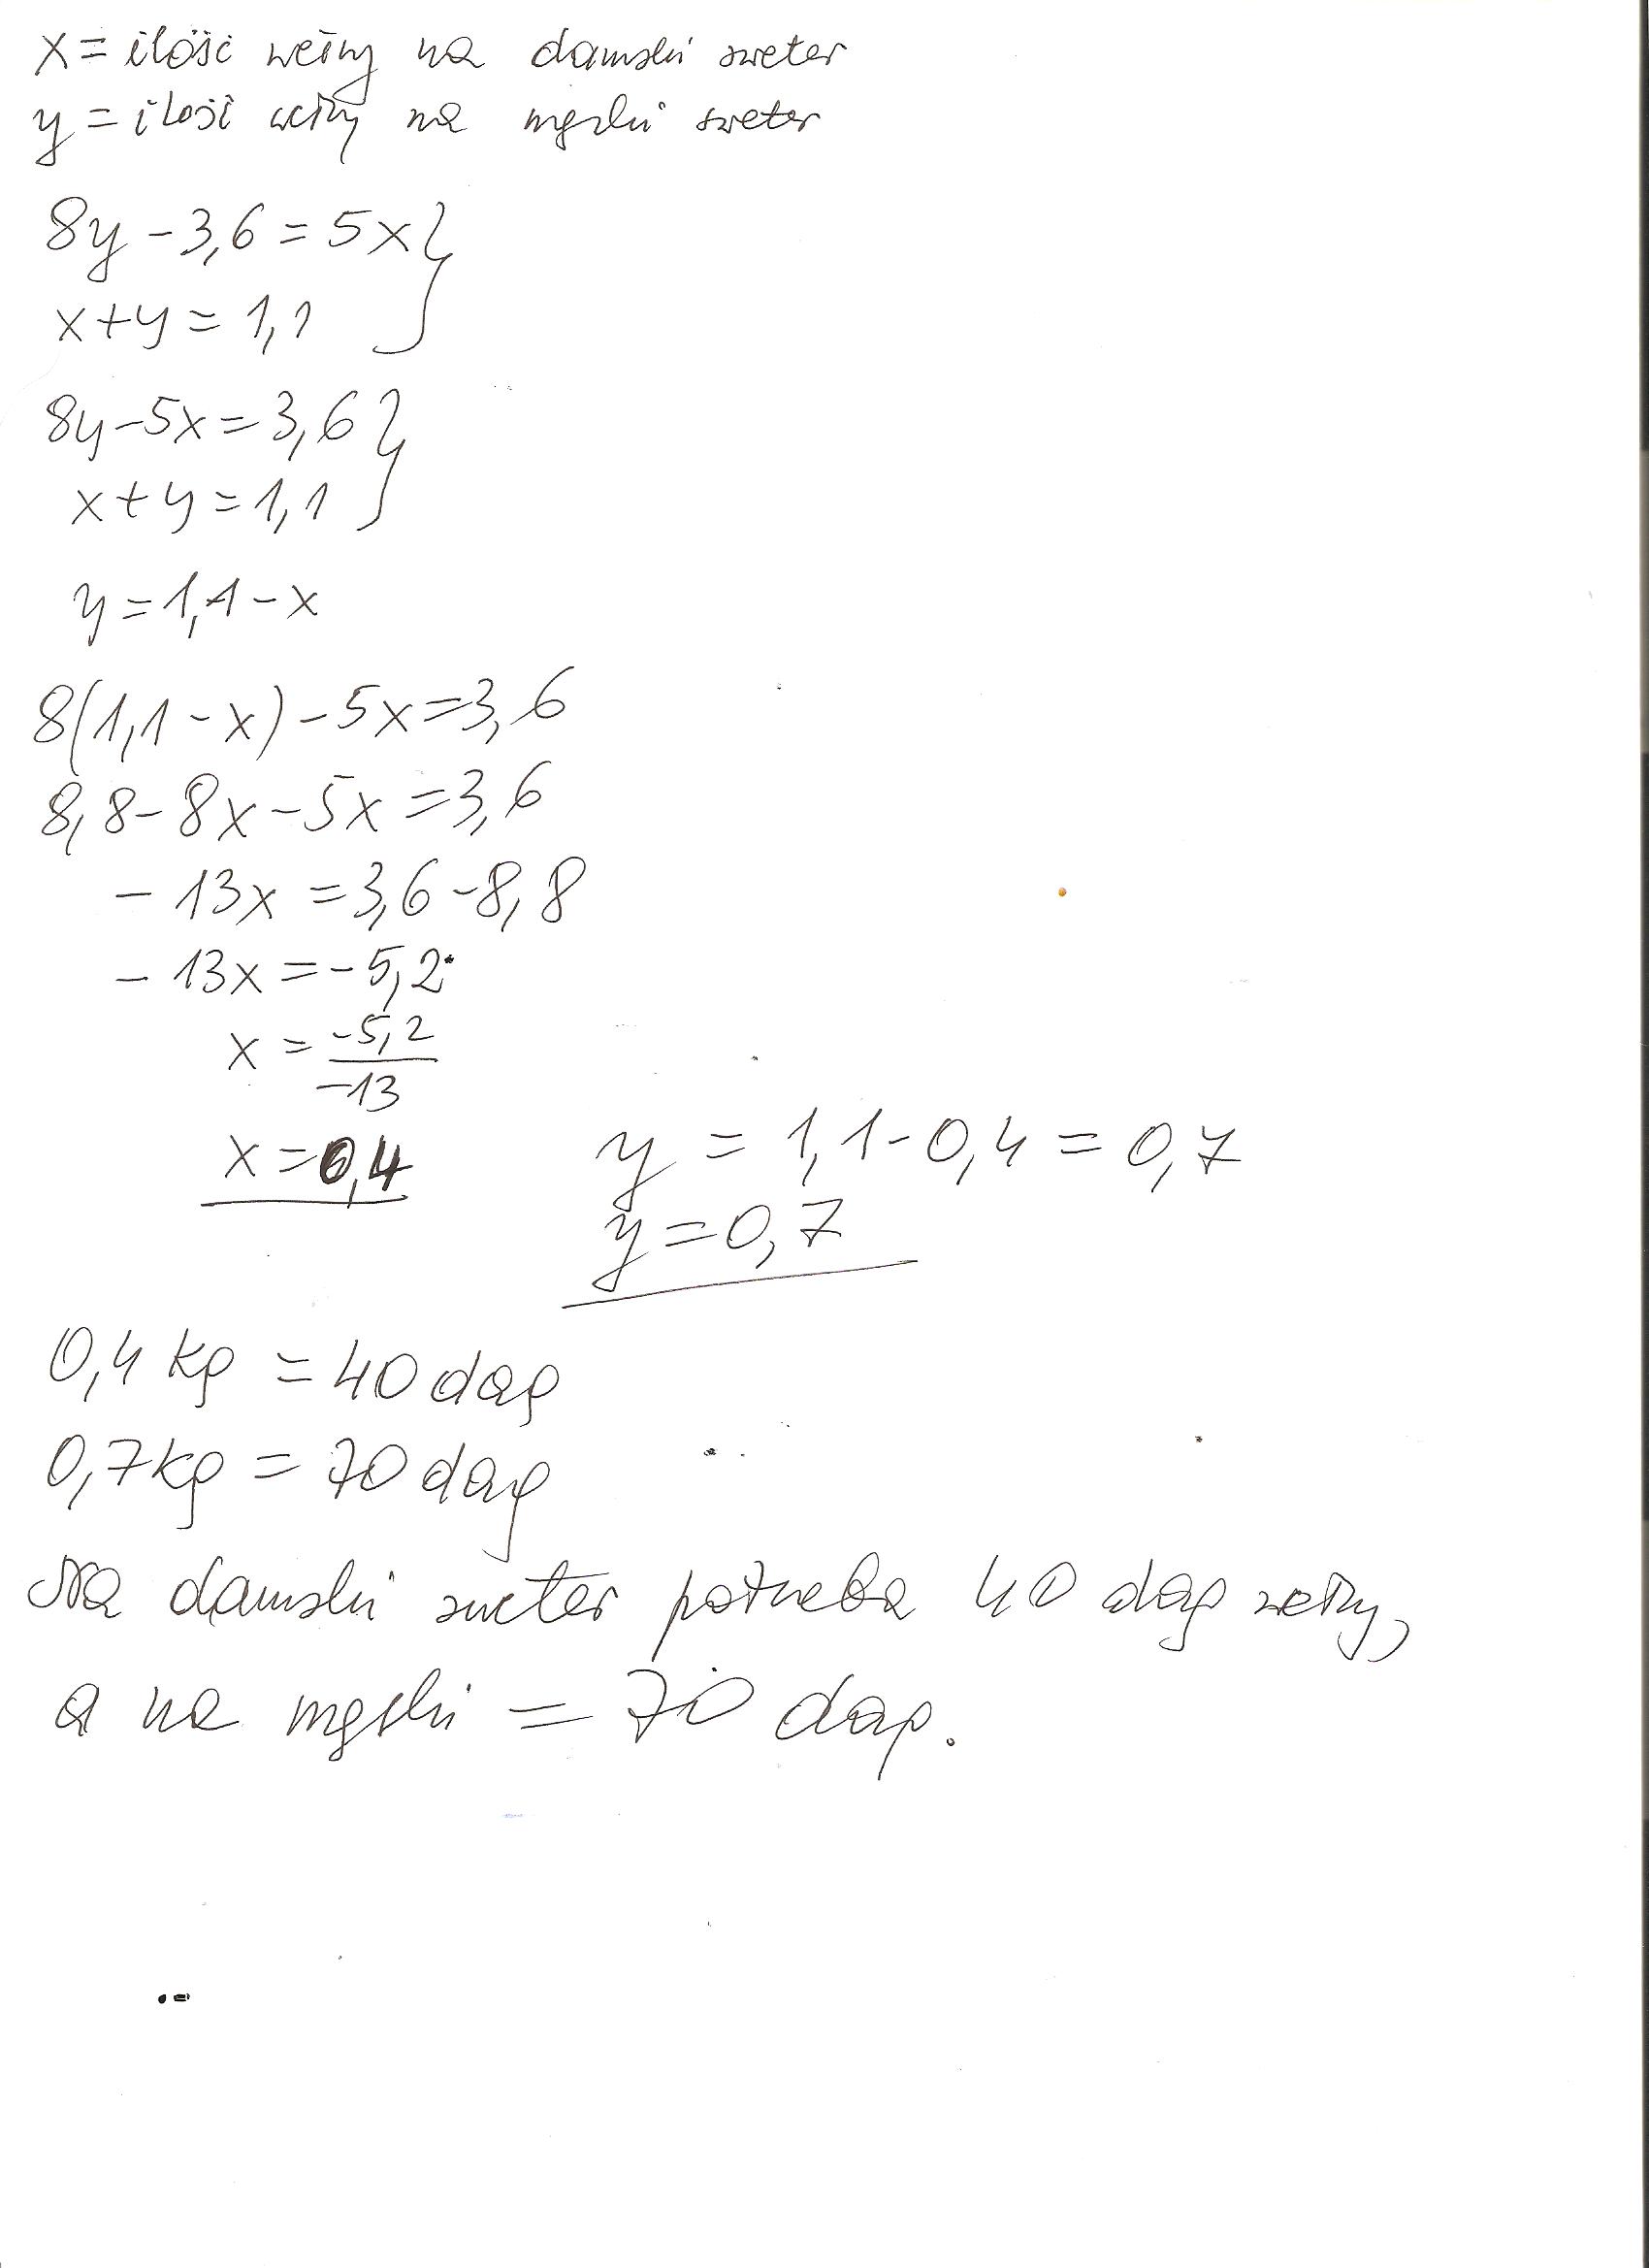 x = ilość wełny na damski sweter
y = ilość wełny na męski sweter
8y - 3,6 = 5x }
x + y = 1,1
8y - 5x = 3,6 }
x + y = 1,1
y = 1,1 - x
8(1,1 - x) - 5x = 3,6
8,8 - 8x - 5x = 3,6
- 13x = 3,6 - 8,8
- 13x = - 5,2
x = -5,2 / -13
x = 0,4
y = 1,1 - 0,4 = 0,7
y = 0,7
0,4 kg = 40 dag
0,7 kg = 70 dag
Na damski sweter potrzeba 40 dag wełny,
a na męski = 70 dag.